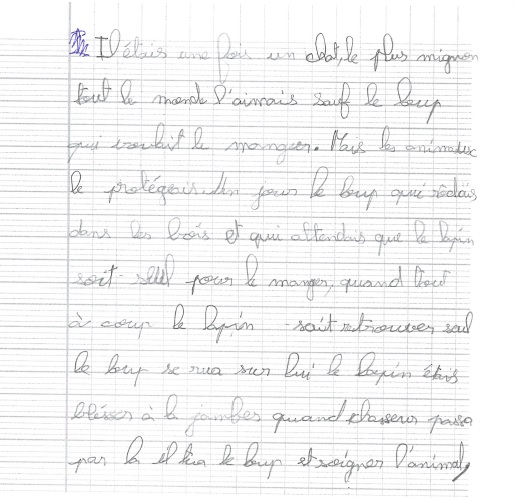 Il étais une fois un chat, le plus mignon
tout le monde l'aimais sauf le loup
qui voulait le manger. Mais les animaux
le protégeais. Un jour le loup qui rôdais
dans les bois et qui attendais que le lapin
soit seul pour le manger, quand tout
à coup le lapin sait retrouver seul
le loup se rua sur lui le lapin étais
blésser à la jambes quand chasseur passa
par la il tua le loup et soigner l'animal,